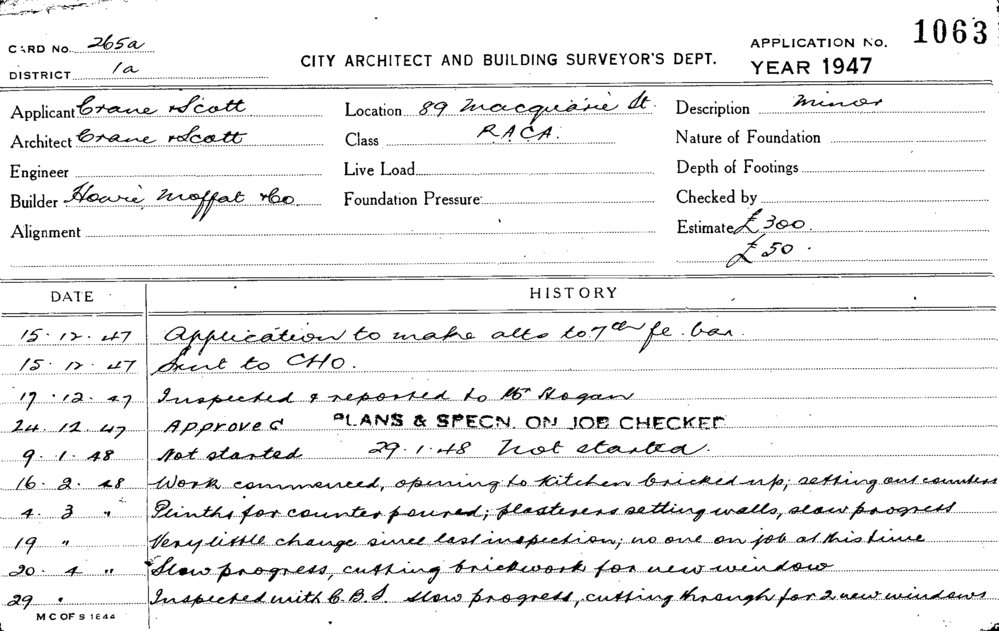 CARD No. 265a
DISTRICT 1a
CITY ARCHITECT AND BUILDING SURVEYOR'S DEPT.
APPLICATION No. 1063
YEAR 1947
Applicant Crane & Scott
Architect Crane & Scott
Engineer
Builder Howie, Moffat & Co
Alignment
Location 89 Macquarie St.
Class RACA.
Live Load
Foundation Pressure
Description Minor
Nature of Foundation
Depth of Footings
Checked by
Estimate £300.
£50.
DATE HISTORY
15.12.47 Application to make alts to 7th fl. bar.
15.12.47 Sent to CHO.
17.12.47 Inspected & reported to Mr Hogan
24.12.47 Approved PLANS & SPECN. ON JOB CHECKED
9.1.48 Not started 29.1.48 Not started.
16.2.48 Work commenced, opening to kitchen bricked up; setting out counters
4.3 " Plinths for counter poured; plasterers setting walls, slow progress
19 " Very little change since last inspection; no one on job at this time
20.4 " Slow progress, cutting brickwork for new window
29 " Inspected with C.B.I. slow progress, cutting through for 2 new windows
M C OF S 1844